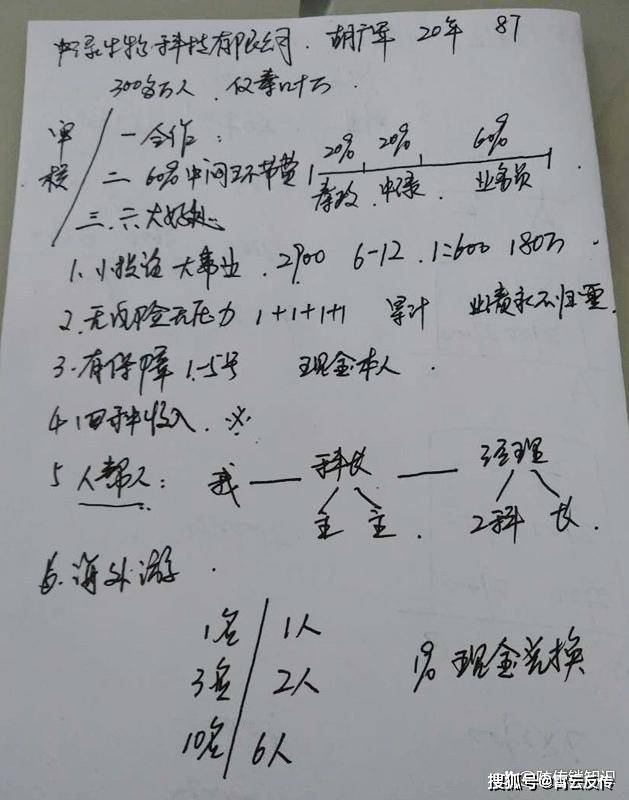 中录生物科技有限公司. 胡广军 20年 87
300多万人. 仅奉叶万.
审核
一 合作:
二. 60%中间环节费 20% 20% 60%
奉政. 中录. 业务员
三. 六大好处
1. 小投资 大事业. 2900 6-12. 1:600 180万.
2. 无风险无压力 1+1+1+1 累计 业绩永不归零.
3. 有保障 1-5号 现金本人.
4. 四种收入. ※
5 人帮人: 我 — 科长 — 经理
主 主. 2科 长.
6. 海外游.
1名 / 1人
3名 / 2人 1% 现金兑换
10名 / 6人
搜狐号@青云反传